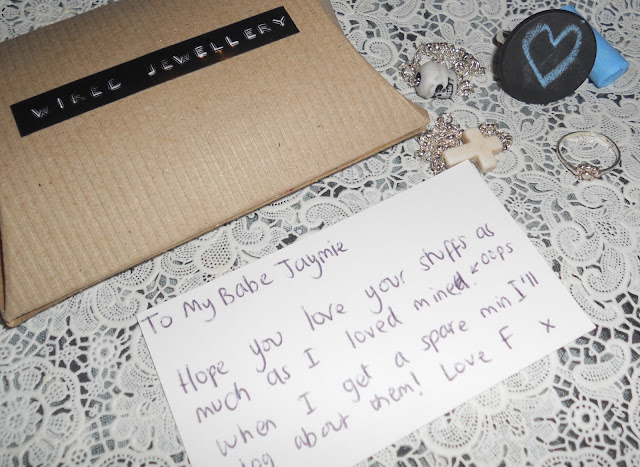 WIRED JEWELLERY
To My Babe Jaymie
Hope you love your stuffs as
much as I loved mined. ← oops
when I get a spare min I'll
log about them! Love F x